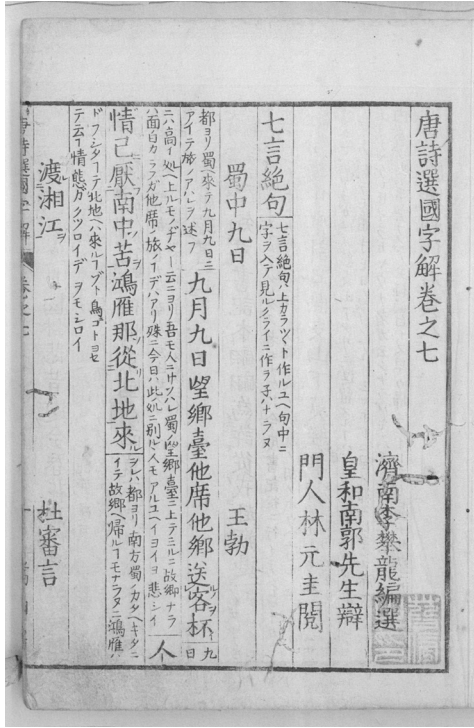 唐詩選國字解卷之七
濟南李攀龍編選
皇和南郭先生辯
門人林元圭閲
七言絶句
七言絶句ハ上カラソツト作ルユヘ句中ニ
字ヲ入テ見ルクライニ作ラ子ハナラヌ
蜀中九日 王勃
都ヨリ蜀ヘ來テ九月九日ニ
アイテ旅ノアハレヲ述フ
九月九日望鄉臺他席他鄉送客杯
九日
ニハ高イ処ヘ上ルモノヂヤト云ニヨリ吾モ人ニサソハレ蜀ノ望鄉臺ニ上テミルニ故鄉ナラ
ハ面白カラフガ他席ノ旅ノコデハアリ殊ニ今日ハ此ノ処ニ別ル人モアルユヘイヨイヨ悲シイ
人
情已厭南中苦鴻雁那從北地來
ヲレハ都ヨリ南方蜀ノカタヘキタニ
イテ故鄉ヘ歸ルコモナラヌニ鴻雁ハ
ドフシタコテ北地ヘハ來ルコゾト鳥ゴトヨセ
テ云フ情態ガクツロイデヲモシロイ
渡湘江 杜審言
唐詩選國字解 卷之七